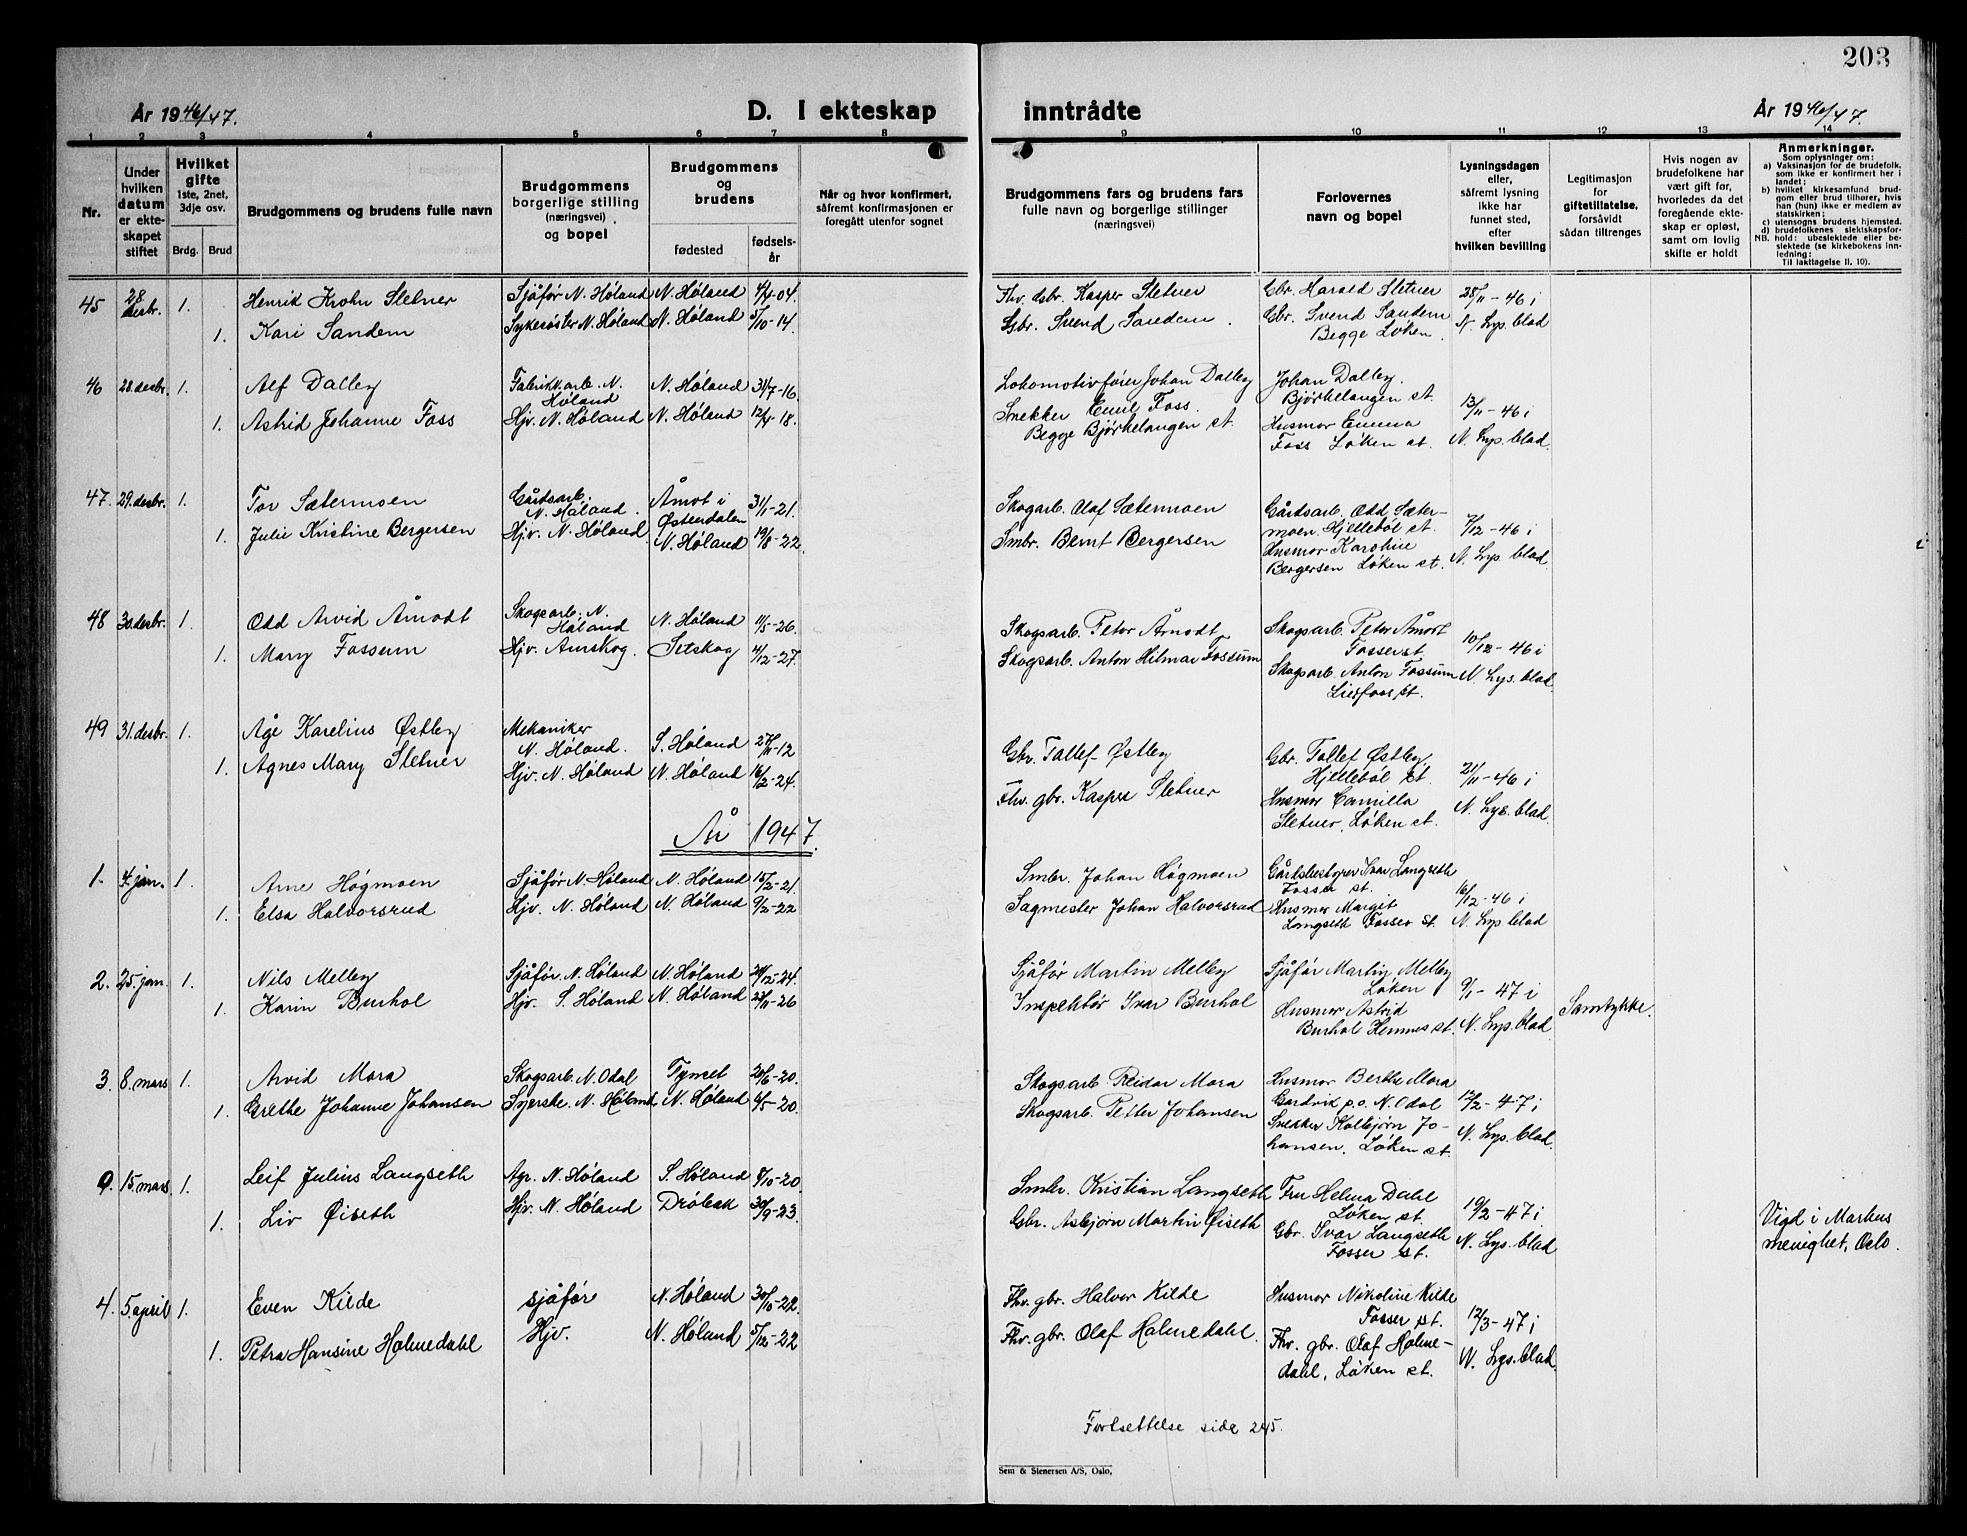 203
År 1946/47.
D. I ekteskap
inntrådte
År 1946/47.
1 2 3 4 5 6 7 8 9 10 11 12 13 14
Nr.
Under hvilken datum er ekteskapet stiftet
Hvilket gifte 1ste, 2net, 3dje osv.
Brdg. Brud
Brudgommens og brudens fulle navn
Brudgommens borgerlige stilling (næringsvei) og bopel
Brudgommens og brudens
fødested
fødselsår
Når og hvor konfirmert, såfremt konfirmasjonen er foregått utenfor sognet
Brudgommens fars og brudens fars fulle navn og borgerlige stillinger (næringsvei)
Forlovernes navn og bopel
Lysningsdagen eller, såfremt lysning ikke har funnet sted, efter hvilken bevilling
Legitimasjon for giftetillatelse, forsåvidt sådan tiltrenges
Hvis nogen av brudefolkene har vært gift før, hvorledes da det foregående ekteskap er opløst, samt om lovlig skifte er holdt
Anmerkninger.
Som oplysninger om:
a) Vaksinasjon for de brudefolk, som ikke er konfirmert her i landet;
b) hvilket kirkesamfund brudgom eller brud tilhører, hvis han (hun) ikke er medlem av statskirken;
c) utensogns brudens hjemsted.
d) brudefolkenes slektskapsforhold: ubeslektede eller beslektede (se kirkebokens innledning:
NB.
Til iakttagelse II, 10).
45 28 desbr. 1. Henrik Krohn Sletner Sjåfør N. Høland N. Høland 4/4-04. Fhv. Gbr. Kasper Sletner Gbr. Harald Sletner 28/11-46 i
1. Kari Sandem Sykesøster N. Høland N. Høland 5/10-14. Gbr. Svend Sandem. Gbr. Svend Sandem N. Lys. blad
Begge Løken.
46 28. desbr. 1. Alf Dalby Fabrikkarb. N. Høland N. Høland 31/7-16. Lokomotivfører Johan Dalby Johan Dalby. Bjørkelangen st. 13/11-46 i
1. Astrid Johanne Foss Hjv. N. Høland N. Høland 12/4-18. Snekker Emil Foss. Husmor Emma
Begge Bjørkelangen st. Foss Løken st. N. Lys. blad.
47. 29. desbr. 1. Tor Sætermoen Gårdsarb. N. Høland. Åmot i Østerdalen 31/1-21. Skogarb. Olaf Sætermoen Gårdsarb. Odd Sætermoen. Hjellebøl st. 7/12-46 i
1. Julie Kristine Bergersen Hjv. N. Høland. N. Høland 19/8-22. Smbr. Bernt Bergersen Husmor Karoline
Bergersen Løken st. N. Lys. blad.
48 30. desbr. 1. Odd Arvid Årnodt Skogsarb. N. Høland N. Høland 11/5-26. Skogsarb. Peter Årnodt Skogsarb. Peter Årnodt Fosser st. 10/12-46 i
1. Mary Fossum Hjv. Aurskog. Setskog 4/12-27. Skogsarb. Anton Hilmar Fossum Skogsarb. Anton Fossum N. Lys. blad.
Lierfoss st.
49 31. desbr. 1. Åge Karelius Østby Mekaniker N. Høland. S. Høland 27/11-12 Gbr. Tollef Østby Gbr. Tollef Østby, Hjellebøl st. 21/11-46 i
1. Agnes Mary Sletner Hjv. N. Høland N. Høland 16/2-24. Fhv. gbr. Kasper Sletner Husmor Camilla N. Lys. blad.
Sletner, Løken st.
År 1947.
1. 4. jan. 1. Arne Høgmoen Sjåfør N. Høland N. Høland 15/2-21. Smbr. Johan Høgmoen Gårdsbestyrer Ivar Langseth Fosser st. 16/12-46 i
1. Elsa Halvorsrud Hjv. N. Høland N. Høland 9/2-22 Sagmester Johan Halvorsrud Husmor Margit
Langseth Fosser st. N. Lys. blad
2. 25. jan. 1. Nils Melby Sjåfør N. Høland N. Høland 20/12-24. Sjåfør Martin Melby Sjåfør Martin Melby Løken 9/1-47 i
1. Karin Burhol Hjv. S. Høland N. Høland 23/11-26 Inspektør Ivar Burhol Husmor Astrid Samtykke.
Burhol Hemnes st. N. Lys. blad
3. 8. mars 1. Arvid Mora Skogsarb. N. Odal Tynset 20/6-20. Skogsarb. Reidar Mora Husmor Berthe Mora
1. Grethe Johanne Johansen Syerske. N. Høland N. Høland 6/5-20. Skogsarb. Petter Johansen Gardvik p.o. N. Odal 12/2-47 i
Snekker Kolbjørn Johansen. Løken st. N. Lys. blad.
9. 15. mars 1. Leif Julius Langseth Agr. N. Høland S. Høland 8/10-20. Smbr. Kristian Langseth Fru Helma Dahl Løken st. 19/2-47 i
1. Liv Øiseth Hjv. N. Høland Drøbak 30/9-23. Gbr. Asbjørn Martin Øiseth Gbr. Ivar Langseth Fosser st. N. Lys. blad Vigd i Markus menighet, Oslo.
4. 5. april 1. Even Kilde sjåfør N. Høland 30/10-22. Fhv. gbr. Halvor Kilde Husmor Nikoline Kilde Fosser st. 12/3-47 i
1. Petra Hansine Holmedahl Hjv. N. Høland 5/12-22 Fhv. gbr. Olaf Holmedahl. Fhv. gbr. Olaf Holmedahl, Løken st. N. Lys. blad.
Fortsettelse side 245.
Sem & Stenersen A/S, Oslo.